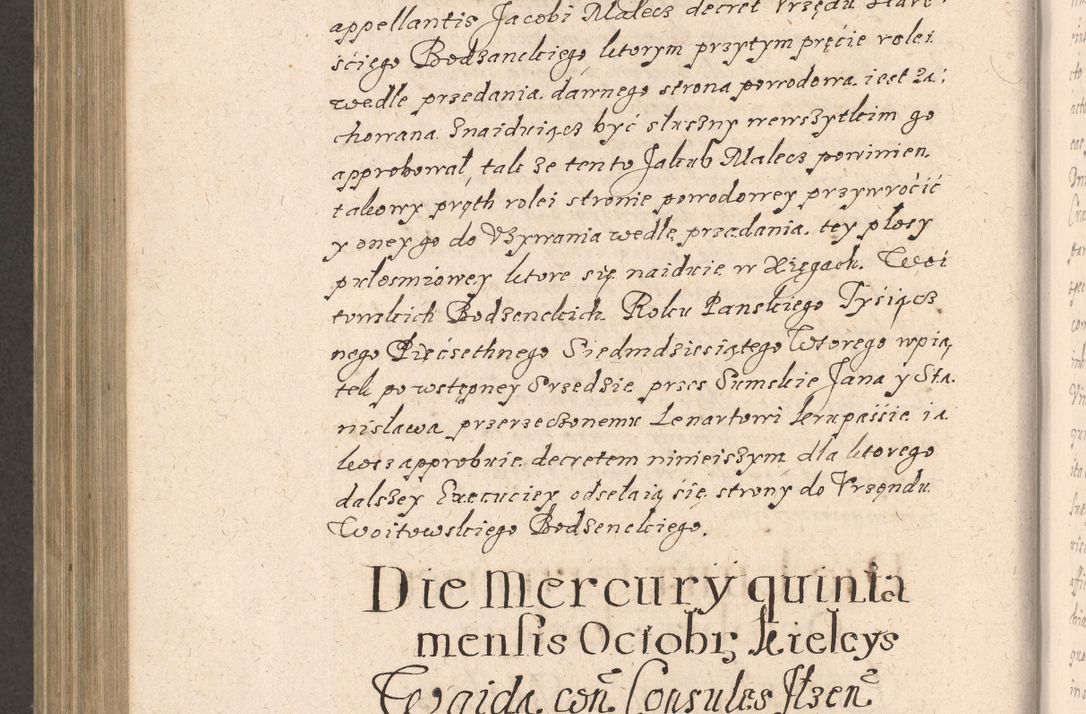 appellantis Jacobi Malecz decret Vrzędu Staro
śćiego Bodzanckiego ktorym przytym pręcie rolei
wedle przedania dawnego strona powodowa iest za:
chowana Znaiduiącz być słuszny wewszytkim go
approbował, tak ze ten to Jakub Malecz powinien
takowy pręth rolei stronie powodowey przywroćić
y oney go do Vzywania wedle przedania tey płosy
pułosmiowey ktore się naiduie w Xięgach Woi
towskich Bodzenckich Roku Panskiego Tyśiącz
nego Pięćsethnego Siedmdziesiątego Wtorego wpią
tek po wstępney Srzedzie przes Sumskie Jana y Sta
nisława przerzeczonemu Lenartowi krupaśśie ia
kosz approbuie decretem ninieiszym dla ktorego
dalszey Execuciey odsełaią się strony do Vrzendu
Woitowskiego Bodzenckiego.
Die Mercury quinta
mensis Octobr; kielcys
Wgida con Consules Jlzen